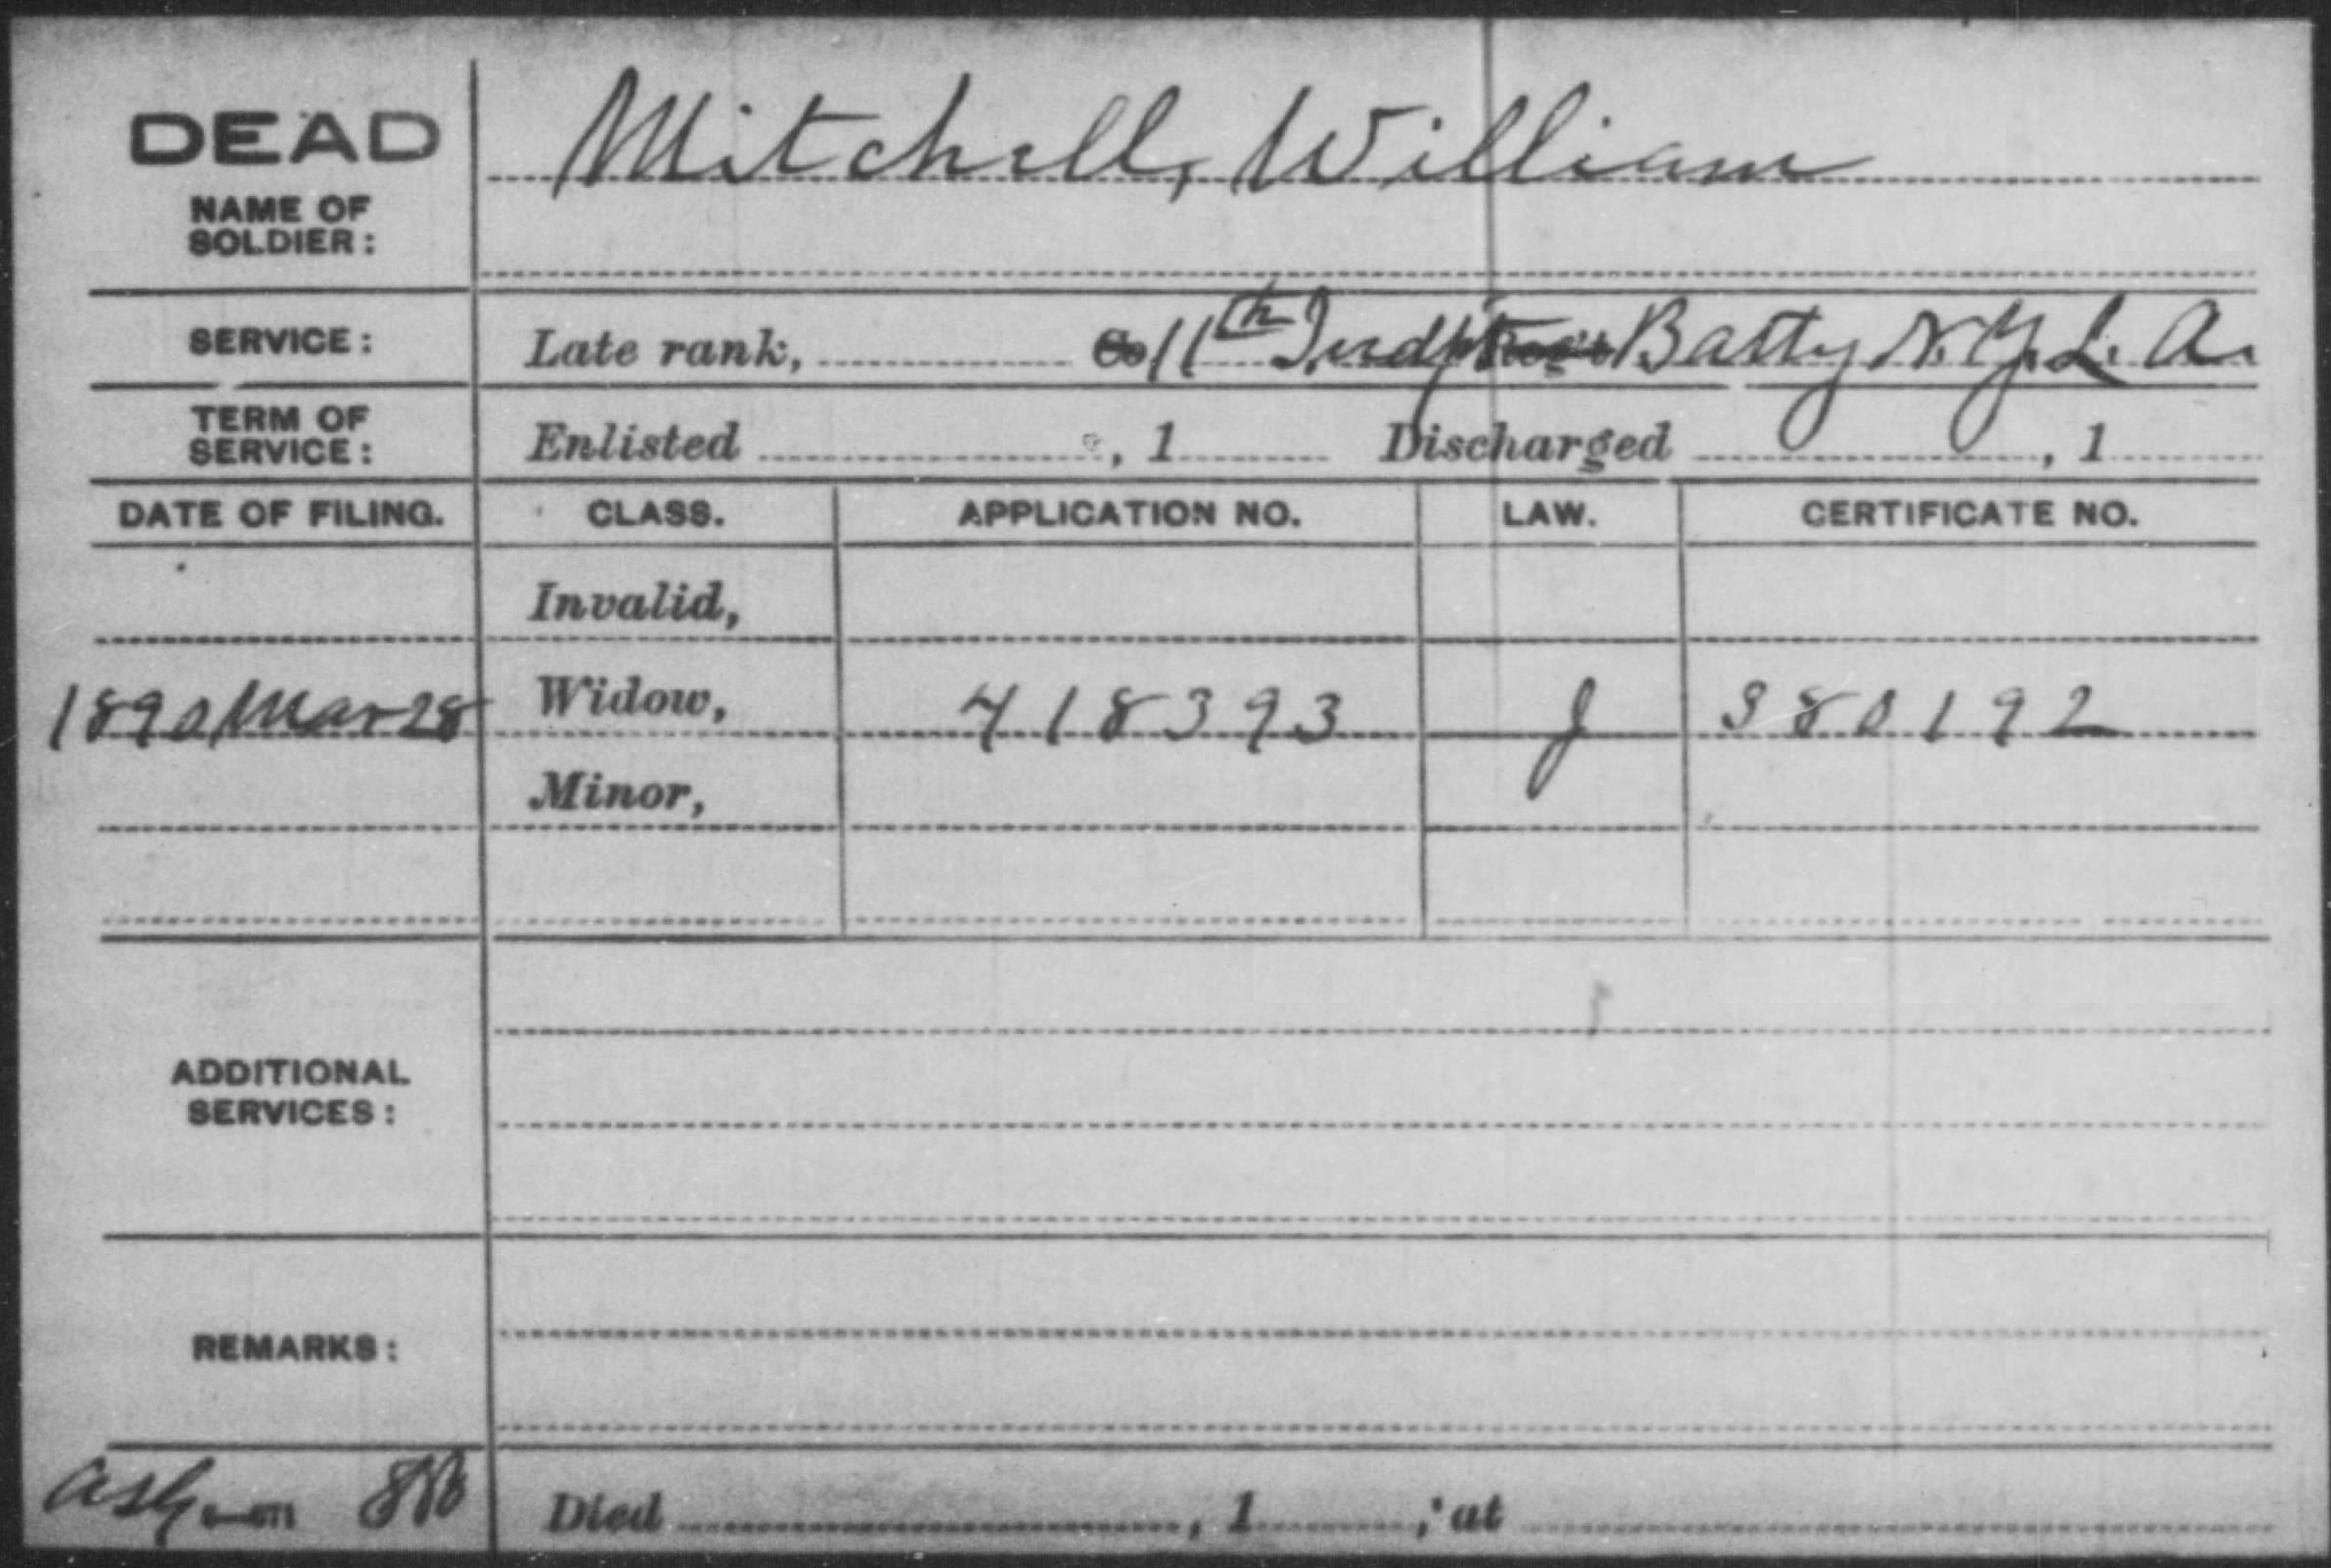 DEAD
Mitchell, William
NAME OF
SOLDIER:
SERVICE: Late rank, Co 11th Indpt Reg't Batty N.Y.L.A.
TERM OF
SERVICE: Enlisted , 1 Discharged , 1
DATE OF FILING. CLASS. APPLICATION NO. LAW. CERTIFICATE NO.
Invalid,
1890 Mar 28 Widow, 418393 J 380192
Minor,
ADDITIONAL
SERVICES:
REMARKS:
Died , 1 ; at